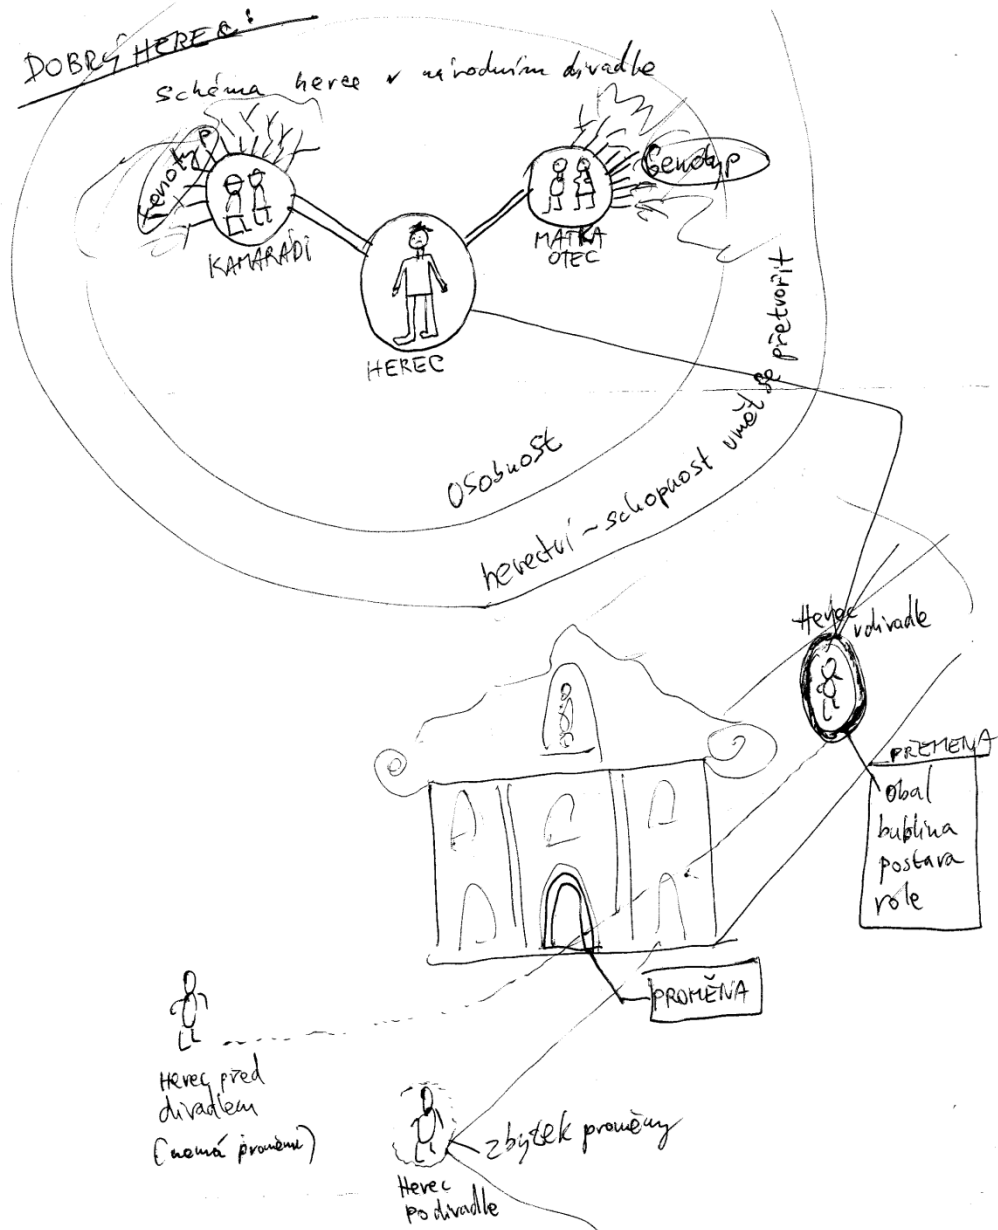 DOBRÝ HEREC:
schéma herce v národním divadle
Fenotyp
Genotyp
KAMARÁDI
MATKA
OTEC
HEREC
osobnost
herectví - schopnost umět se přetvořit
Herec
v divadle
PŘEMĚNA
obal
bublina
postava
role
PROMĚNA
Herec před
divadlem
(nemá proměnu)
zbytek proměny
Herec
po divadle